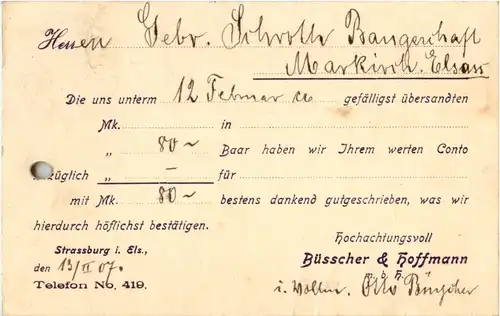 Herren Gebr. Schroth Baugeschäft
Markirch. Elsass
Die uns unterm 12 Februar ca gefälligst übersandten
Mk. in
„ 80 ~ Baar haben wir Ihrem werten Conto
züglich „ — für
mit Mk. 80 ~ bestens dankend gutgeschrieben, was wir
hierdurch höflichst bestätigen.
Hochachtungsvoll
Strassburg i. Els.,
Büsscher & Hoffmann
den 13/II 07.
m. b. H.
Telefon No. 419.
i. Vollm. Otto Büsscher